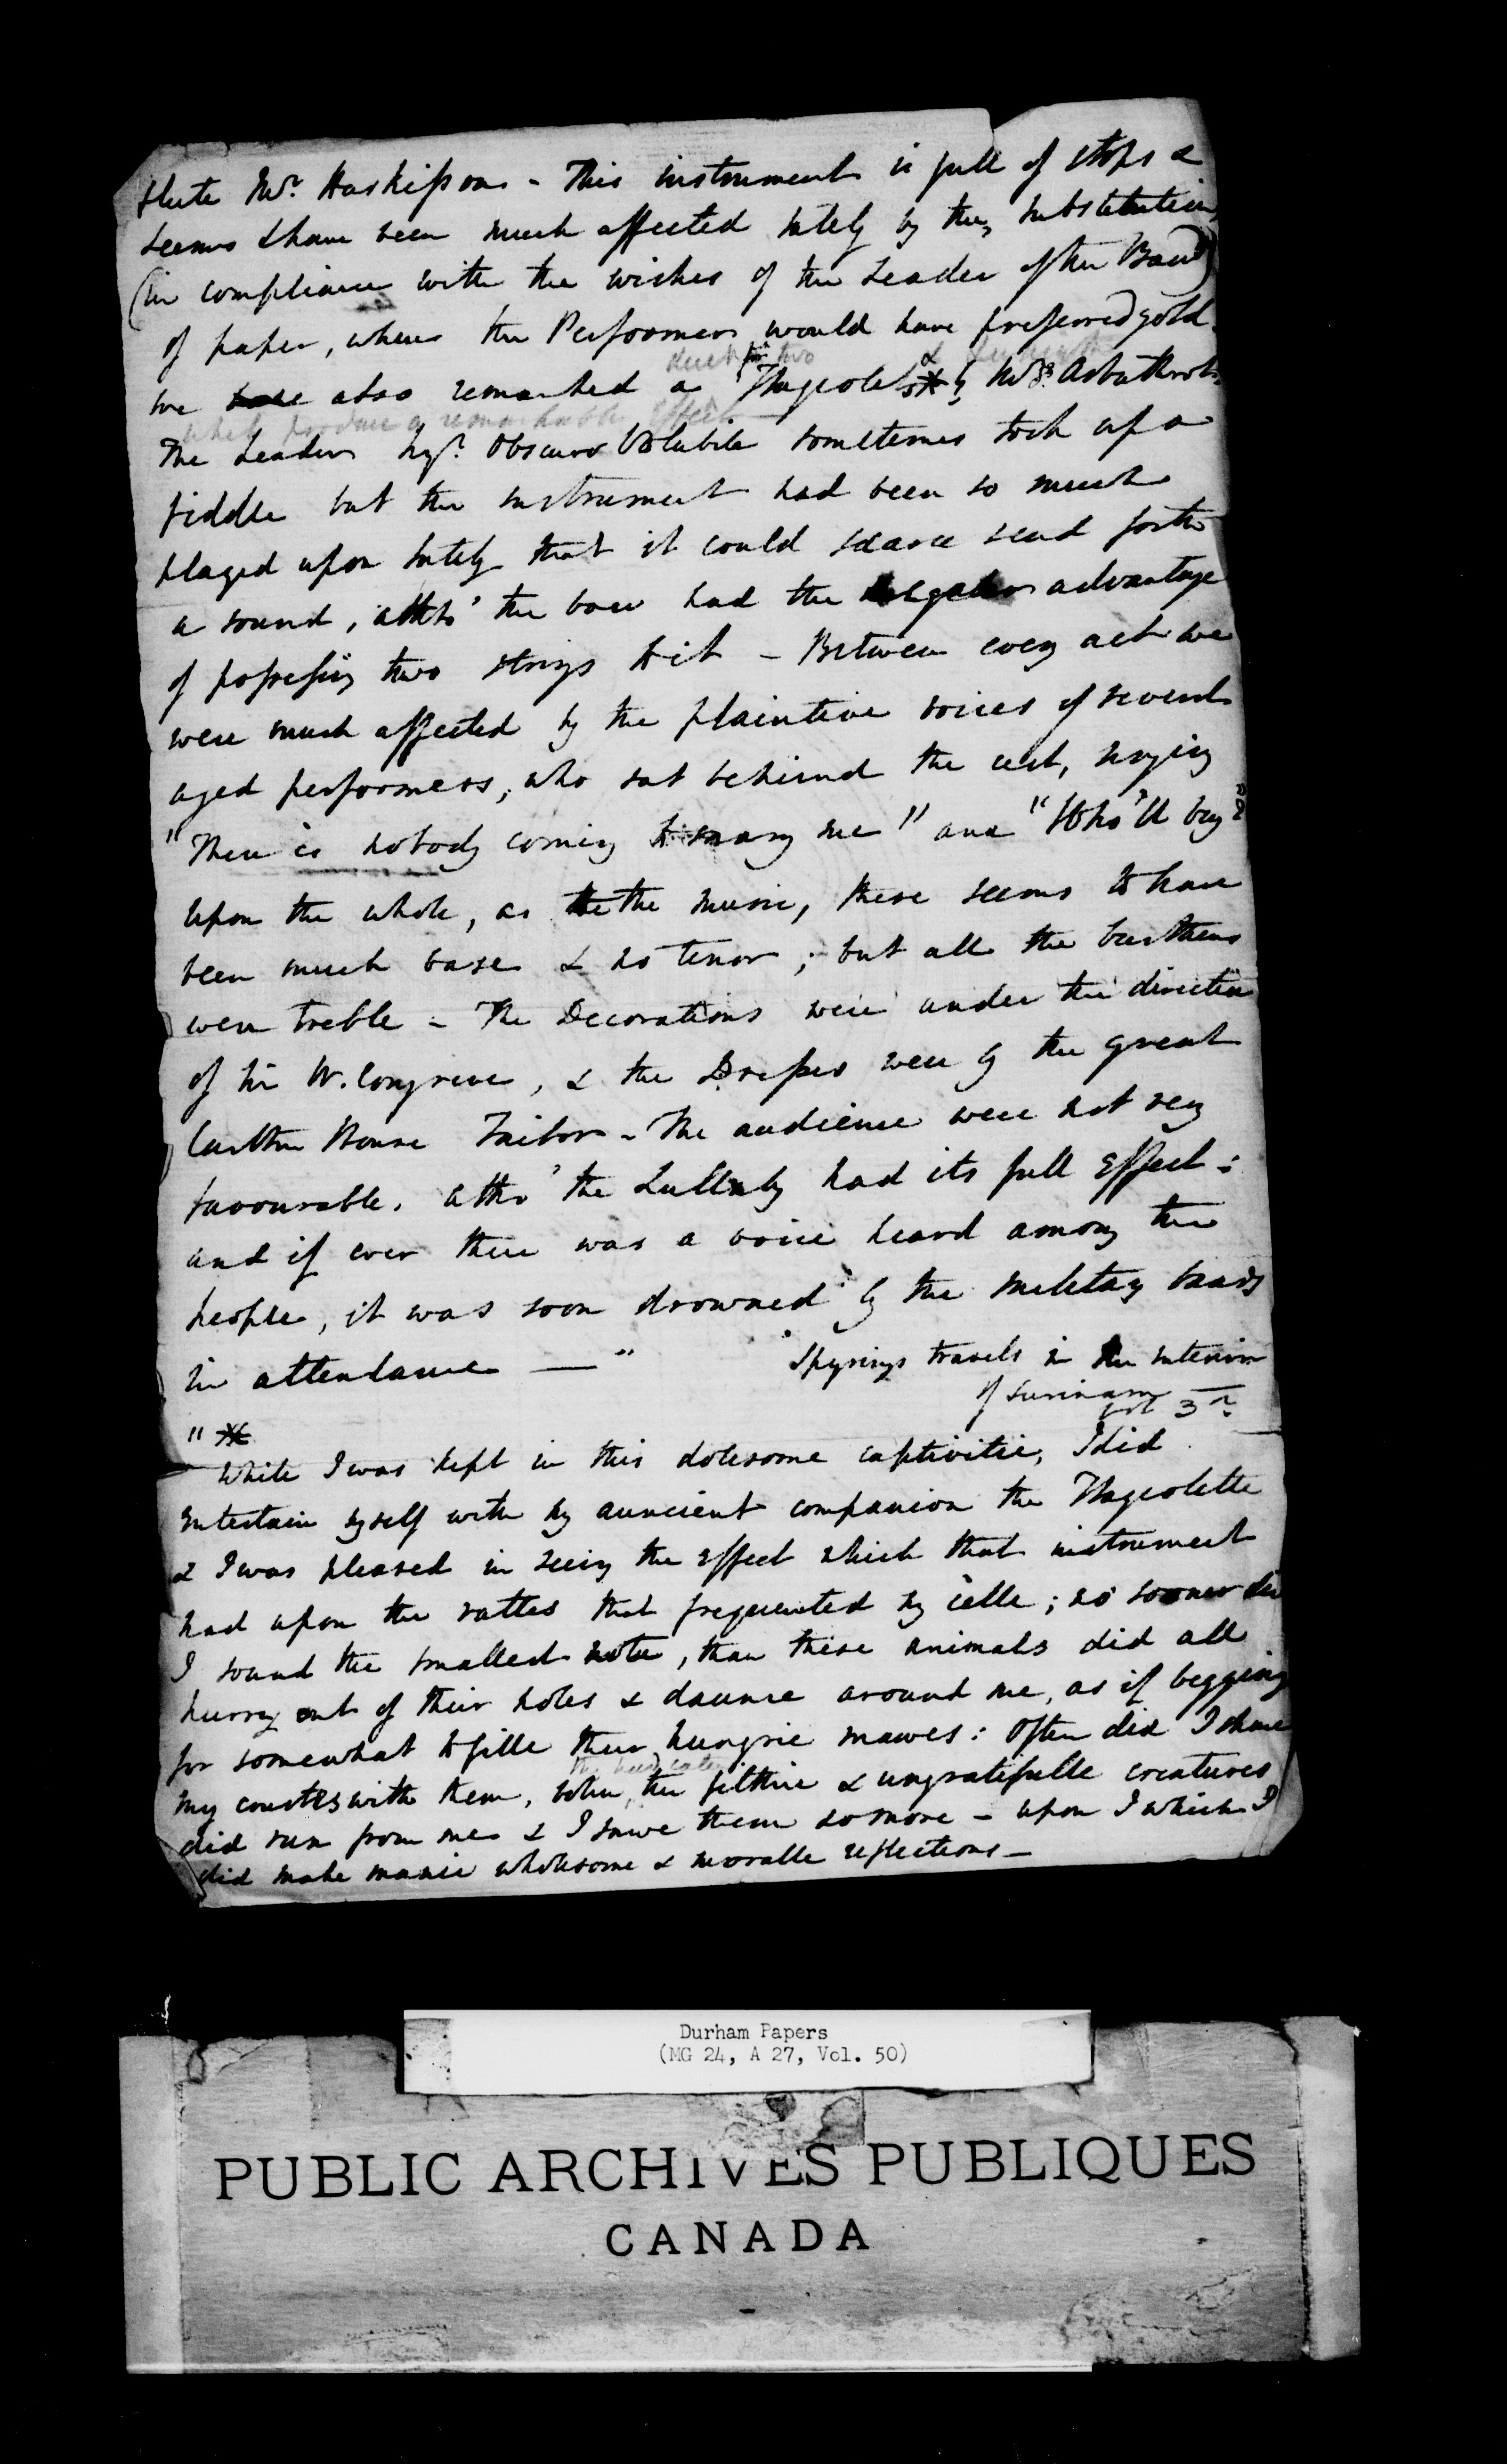 flute Mr. Huskisson - This instrument is full of stops &
seems to have been much affected lately by the substitution
(in compliance with the wishes of the Leader of the Band)
of paper, where the Performer would have preferred gold.
duet for two &
We have also remarked a Flageolets * by Mrs. Arbuthnot.
which produce a remarkable effect
The Leader Sigr. Obscuro Volubile sometimes took up a
fiddle but the instrument had been so much
played upon lately that it could scarce send forth
a sound, altho' the bow had the advantage
of possessing two strings to it - Between every act we
were much affected by the plaintive voices of several
aged performers, who sat behind the rest, singing
"There is nobody coming to marry me" and "Who'll buy
Upon the whole, as to the music, there seems to have
been much base & no tenor; but all the burthens
were treble - The Decorations were under the direction
of Sir W. Congreve, & the Dresses were by the great
Carlton House Tailor - The audience were not very
favourable. altho' the Lullaby had its full effect:
and if ever there was a voice heard among the
people, it was soon drowned by the military bands
in attendance —"
Spyrings travels in the interior
of Surinam —
vol 3d.
" *
While I was kept in this dolesome captivitie, I did
entertain myself with my auncient companion the Flageolette
& I was pleased in seeing the effect which that instrument
had upon the rattes that frequented my celle; no sooner did
I sound the smallest note, than these animals did all
hurry out of their holes & daunce around me, as if begging
for somewhat to fille their hungrie mawes: Often did I share
my crusts with them, when, the filthie & ungratefulle creatures
did run from me & I sawe them no more - upon which I
did make manie wholesome & moralle reflections -
Durham Papers
(MG 24, A 27, Vol. 50)
PUBLIC ARCHIVES PUBLIQUES
CANADA